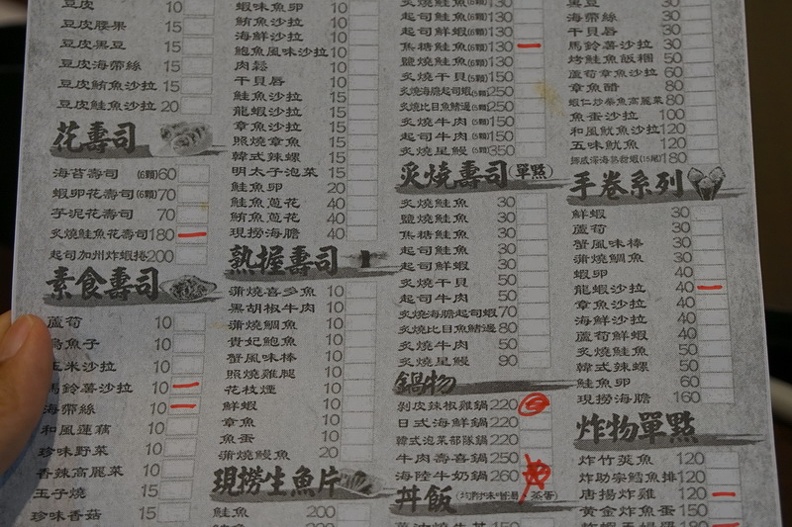 豆皮 10
豆皮腰果 15
豆皮黑豆 15
豆皮海帶絲 15
豆皮鮪魚沙拉 15
豆皮鮭魚沙拉 20
花壽司
海苔壽司 (6顆)60
蝦卵花壽司(6顆)70
芋泥花壽司 70
炙燒鮭魚花壽司180
起司加州炸蝦捲200
素食壽司
蘆筍 10
烏魚子 10
玉米沙拉 10
馬鈴薯沙拉 10
海帶絲 10
和風蓮藕 10
珍味野菜 10
香辣高麗菜 10
玉子燒 15
珍味香菇 15
蝦味魚卵 10
鮪魚沙拉 10
海鮮沙拉 10
鮑魚風味沙拉 10
肉鬆 10
干貝唇 10
鮭魚沙拉 15
龍蝦沙拉 15
章魚沙拉 15
照燒章魚 15
韓式辣螺 15
明太子泡菜 15
鮭魚卵 20
鮭魚蔥花 40
鮪魚蔥花 40
現撈海膽 40
熟握壽司
蒲燒喜多魚 10
黑胡椒牛肉 10
蒲燒鯛魚 10
貴妃鮑魚 10
蟹風味棒 10
照燒雞腿 10
花枝煙 10
鮮蝦 10
章魚 10
魚蛋 10
蒲燒鰻魚 20
現撈生魚片
鮭魚 200
炙燒鮭魚(6顆)130
起司鮭魚(6顆)130
起司鮮蝦(6顆)130
焦糖鮭魚(6顆)130
鹽燒鮭魚(6顆)130
炙燒干貝(5顆)150
炙燒海膽起司蝦(5顆)250
炙燒比目魚鰭邊(5顆)250
炙燒牛肉(5顆)150
起司牛肉(5顆)150
炙燒星鰻(5顆)350
炙燒壽司(單點)
炙燒鮭魚 30
鹽燒鮭魚 30
焦糖鮭魚 30
起司鮭魚 30
起司鮮蝦 30
炙燒干貝 50
炙燒牛肉 50
起司牛肉 50
炙燒海膽起司蝦 70
炙燒比目魚鰭邊 80
炙燒星鰻 90
鍋物
剝皮辣椒雞鍋220
日式海鮮鍋 220
韓式泡菜部隊鍋 220
牛肉壽喜鍋 250
海陸牛奶鍋 260
丼飯
黑豆 30
海帶絲 30
干貝唇 30
馬鈴薯沙拉 30
烤鮭魚飯糰 50
蘆筍章魚沙拉 60
章魚醋 80
蝦仁炒柴魚高麗菜 80
魚蛋沙拉 100
和風魷魚沙拉 120
五味魷魚 120
挪威深海熟粉蝦(15尾)180
手卷系列
鮮蝦 30
蘆筍 30
蟹風味棒 30
蒲燒鯛魚 30
蝦卵 40
龍蝦沙拉 40
章魚沙拉 40
海鮮沙拉 40
蘆筍鮮蝦 40
炙燒鮭魚 50
韓式辣螺 50
鮭魚卵 60
現撈海膽 160
炸物單點
炸竹莢魚 120
炸助宗鱈魚排120
唐揚炸雞 120
黃金炸魚蛋 150